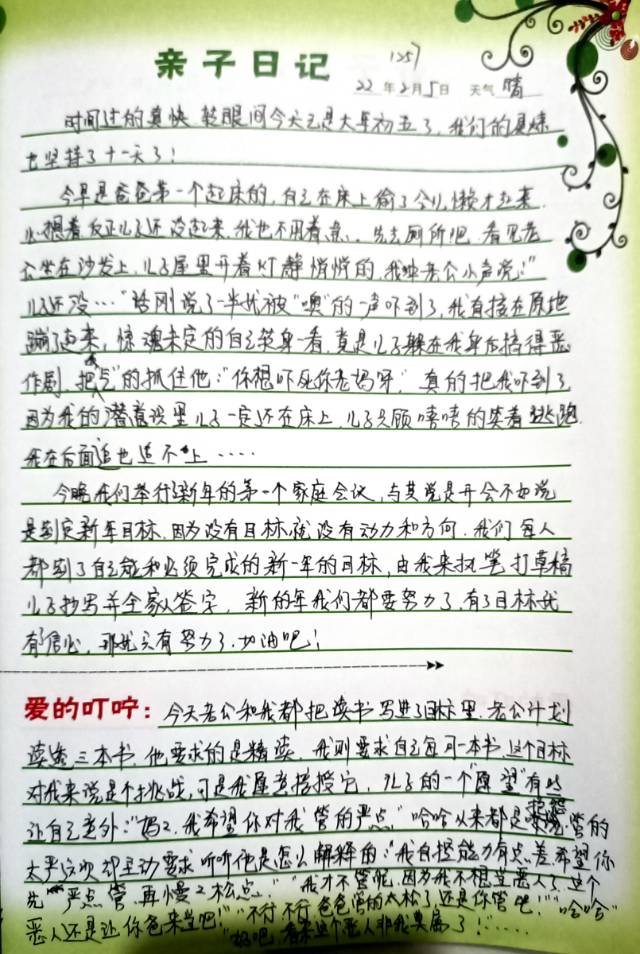 亲子日记
1257
22年2月5日 天气 晴
时间过的真快 转眼间今天已是大年初五了,我们的晨练
也坚持了十一天了!
今早是爸爸第一个起床的,自己在床上偷了会儿懒才起来
心想着反正儿子还没起来,我也不用着急、先去厕所吧 看见老
公坐在沙发上,儿子屋里开着灯静悄悄的,我㕷老公小声说:"
儿子还没…"话刚说了一半就被"噢"的一声吓到了,我直接在原地
蹦了起来,惊魂未定的自己转身一看,竟是儿子躲在我身后搞得恶
作剧.把"乓"的抓住他:"你想吓死你老妈呀,"真的把我吓到了
因为我的潜意识里儿子一定还在床上 儿子只顾嘻嘻的笑着逃跑
我在后面追也追不上……
今晚我们举行了新年的第一个家庭会议,与其说是开会不如说
是制定新年目标,因为没有目标就没有动力和方向.我们每人
都制了自己能和必须完成的新一年的目标,由我来执笔打草稿
儿子抄写并全家人签字, 新的年我们都要努力了.有了目标就
有了信心,那就只有努力了.加油吧!
爱的叮咛:今天老公和我都把读书写进了目标里.老公计划
读透三本书,他要求的是精读.我则要求自己每月一本书 这个目标
对我来说是个挑战,可是我愿意接受它. 儿子的一个"愿望"有些
让自己意外:"妈妈,我希望你对我管的严点"哈哈从来都是抱怨管的
太严这次却主动要求 听听他是怎么解释的:"我自控能力有点差希望你
先严点管 再慢慢松点." "我才不管呢,因为我不想当恶人了,这个
恶人还是让你爸来当吧!""不行不行 爸爸管的太松了还是你管吧!""哈哈"
"好吧,看来这个恶人非我莫属了!"……